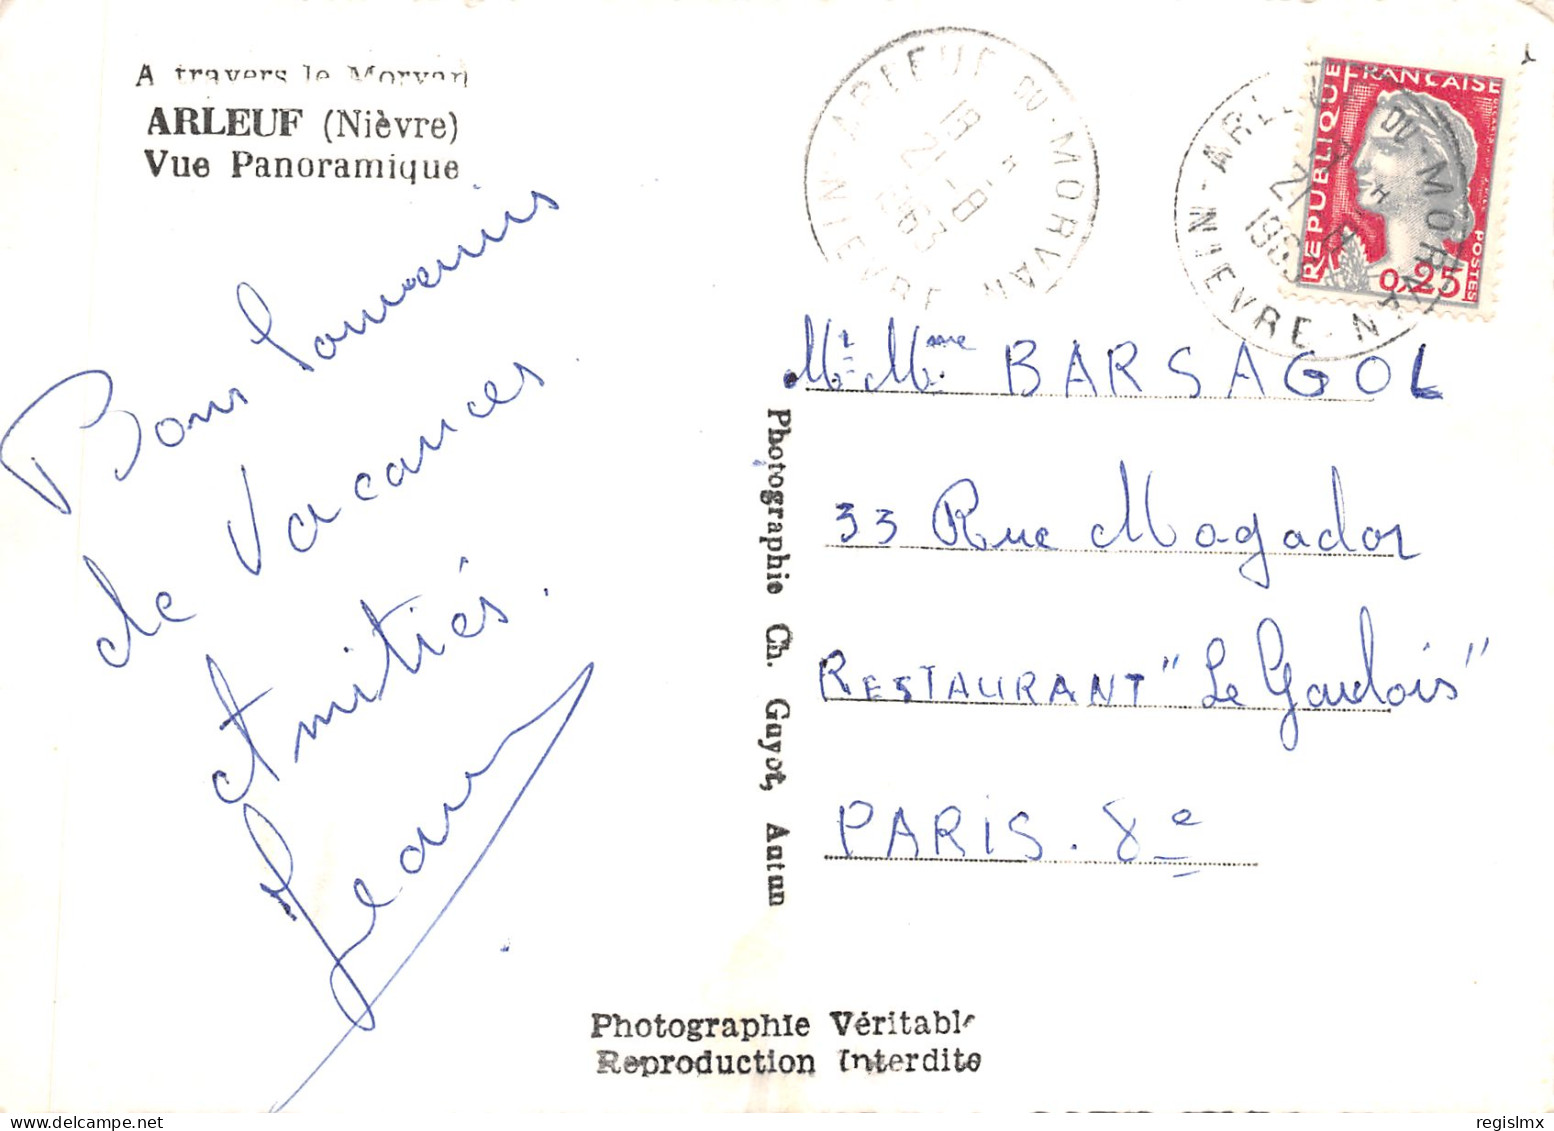 A travers le Morvan
ARLEUF (Nièvre)
Vue Panoramique
Bons Souvenirs
de Vacances.
Amitiés.
Jean
ARLEUF DU MORVAN
NIEVRE
18 H
21 -8
1963
ARLEUF DU MORVAN
NIEVRE
H
21 -8
196
REPUBLIQUE FRANÇAISE
POSTES
0,25
Mr Mme BARSAGOL
33 Rue Mogador
RESTAURANT "Le Gaulois"
PARIS. 8e
Photographie Ch. Guyot, Autun
Photographie Véritable
Reproduction Interdite
regislmx